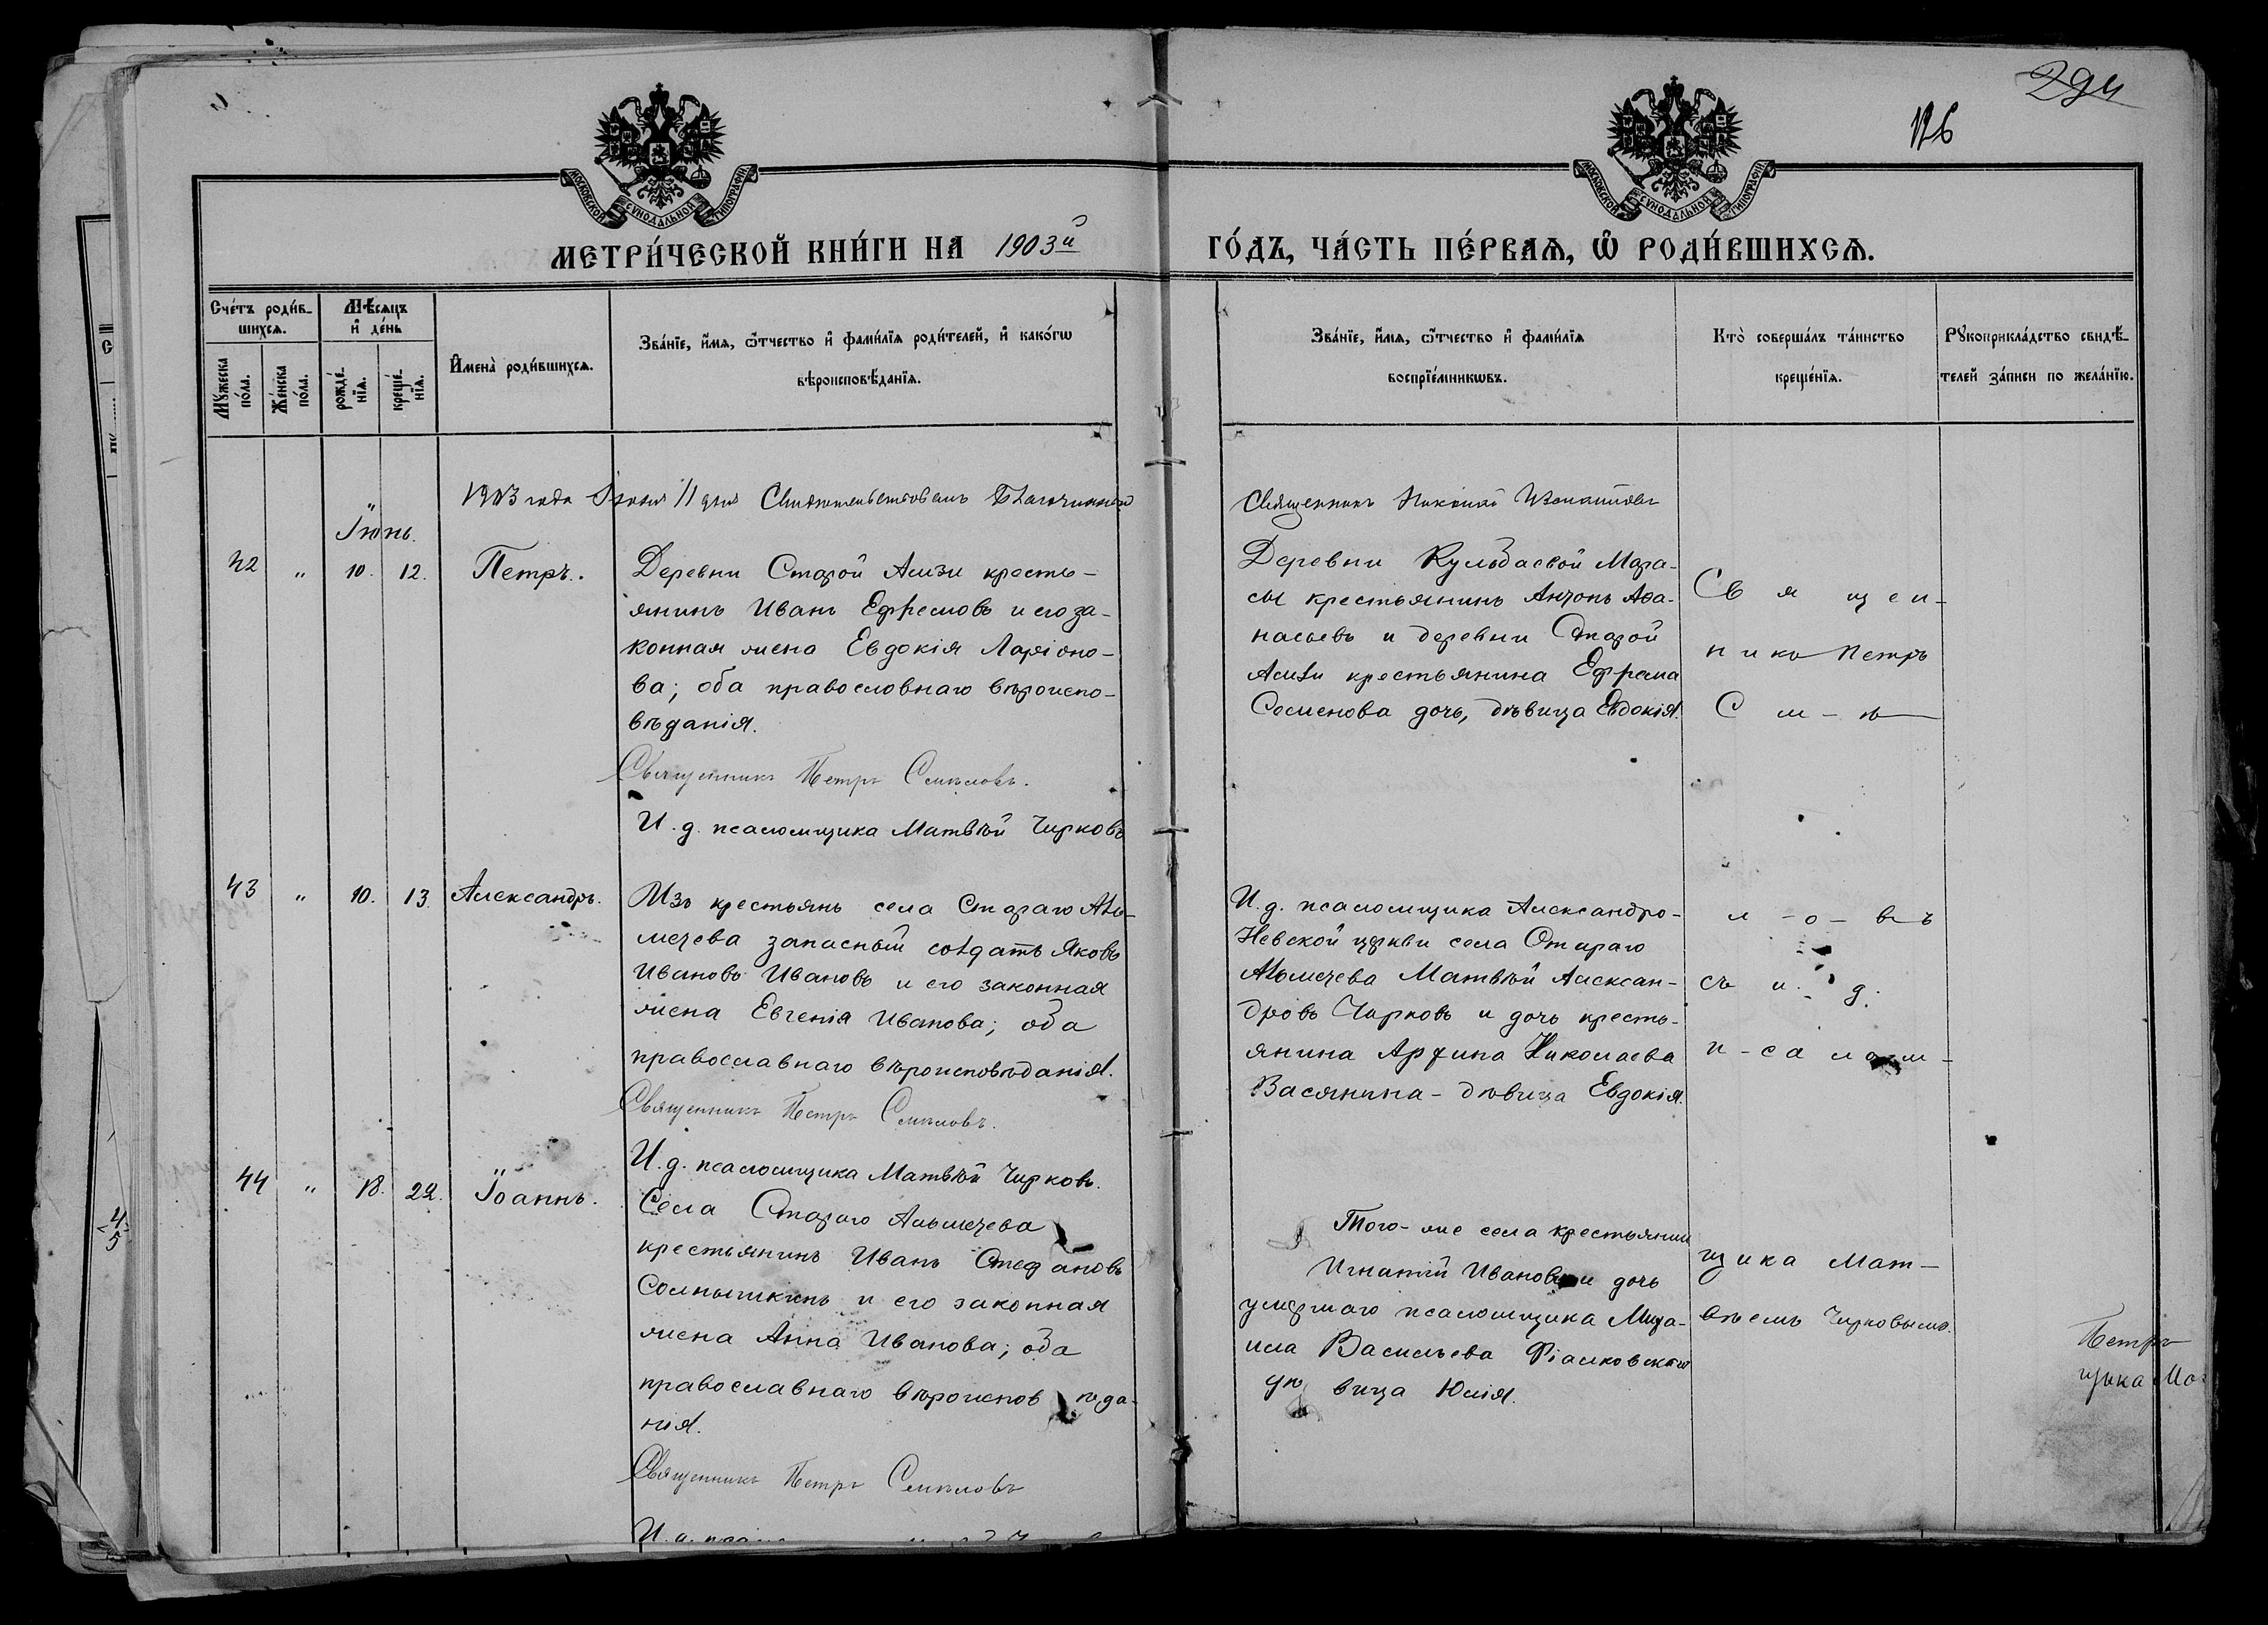 294
126
МОСКОВСКОЙ СѴНОДАЛЬНОЙ ТИПОГРАФІИ
МОСКОВСКОЙ СѴНОДАЛЬНОЙ ТИПОГРАФІИ
МЕТРИ́ЧЕСКОЙ КНИ́ГИ НА 1903й ГО́ДЪ, ЧА́СТЬ ПЕ́РВАѦ, Ѡ҆ РОДИ́ВШИХСѦ.
Сче́тъ роди́в-
шихсѧ.
Мѣ́сѧцъ
и҆ де́нь
Мꙋ́жеска
по́ла.
Же́нска
по́ла.
рожде́-
нїѧ.
креще́-
нїѧ.
И҆мена̀ роди́вшихсѧ.
Зва́нїе, и҆́мѧ, ѻ҆́тчество и҆ фами́лїѧ роди́телей, и҆ како́гѡ
вѣроисповѣ́данїѧ.
Зва́нїе, и҆́мѧ, ѻ҆́тчество и҆ фами́лїѧ
воспрїе́мникѡвъ.
Кто̀ соверша́лъ та́инство
креще́нїѧ.
Рꙋкоприкла́дство свидѣ́-
телей за́писи по жела́нїю.
1903 года Іюня 11 дня Свидѣтельствовалъ Благочинный
Священникъ Николай
Іюнь.
42 " 10. 12. Петръ.
Деревни Старой Амзи кресть-
янинъ Иванъ Ефремовъ и его за-
конная жена Евдокія Ларіоно-
ва; оба православнаго вѣроиспо-
вѣданія.
Священникъ Петръ Смѣловъ.
И. д. псаломщика Матвѣй Чирковъ
Деревни Кульбаевой Мара-
сы крестьянинъ Антонъ Аѳа-
насьевъ и деревни Старой
Амзи крестьянина Ефрема
Семенова дочь, дѣвица Евдокія.
Священ-
никъ Петръ
См-ѣ
43 " 10. 13. Александръ.
Изъ крестьянъ села Стараго Аль-
метева запасный солдатъ Яковъ
Ивановъ Ивановъ и его законная
жена Евгенія Иванова; оба
православнаго вѣроисповѣданія.
Священникъ Петръ Смѣловъ.
И. д. псаломщика Матвѣй Чирковъ.
И. д. псаломщика Александро-
Невской церкви села Стараго
Альметева Матвѣй Алексан-
дровъ Чирковъ и дочь кресть-
янина Арфина Николаева
Васянина - дѣвица Евдокія.
л-о-въ
съ и. д.
п-салом-
44 " 18. 22. Іоаннъ.
Села Стараго Альметева
крестьянинъ Иванъ Стефановъ
Солнышкинъ и его законная
жена Анна Иванова; оба
православнаго вѣроисповѣда-
нія.
Священникъ Петръ Смѣловъ
Того-же села крестьянин
Игнатій Ивановъ и дочь
умершаго псаломщика Миха-
ила Васильева Фіалковскаго
дѣвица Юлія.
щика Мат-
вѣемъ Чирковымъ.
Петръ
щика Ма